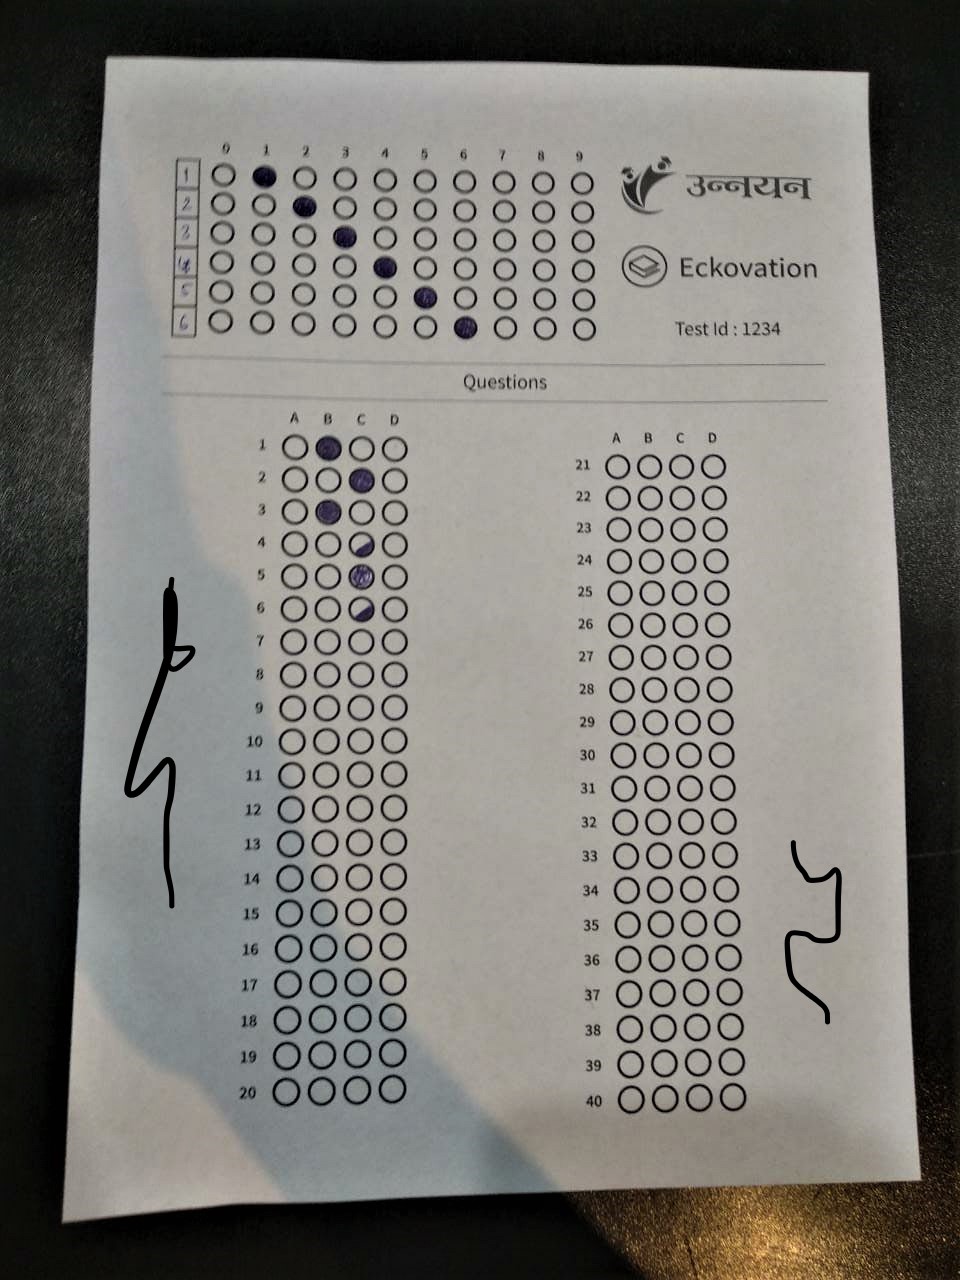 0 1 2 3 4 5 6 7 8 9
1
2
3
4
5
6
उन्नयन
Eckovation
Test Id : 1234
Questions
A B C D
1
2
3
4
5
6
7
8
9
10
11
12
13
14
15
16
17
18
19
20
A B C D
21
22
23
24
25
26
27
28
29
30
31
32
33
34
35
36
37
38
39
40